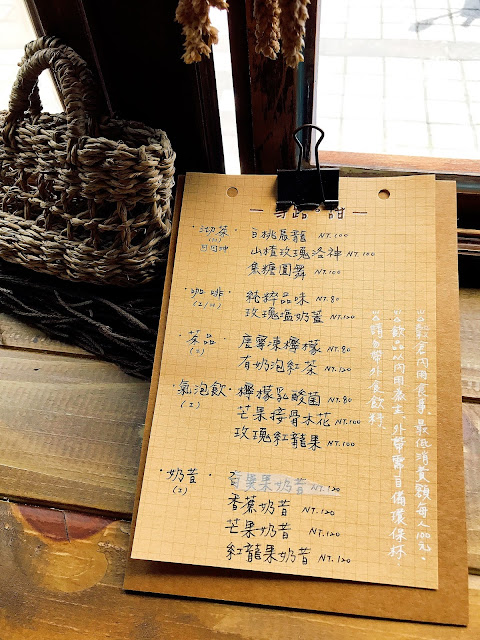 路。甜
沏茶 · 白桃烏龍 NT.100
山楂玫瑰洛神 NT.100
焦糖圓舞 NT.100
咖啡 · 純粹品味 NT.80
玫瑰溫奶蓋 NT.120
茶品 · 唐寧凍檸檬 NT.80
有奶泡紅茶 NT.120
氣泡飲 · 檸檬乳酸菌 NT.80
芒果接骨木花 NT.100
玫瑰紅龍果 NT.100
奶昔 · 百果奶昔 NT.120
香蕉奶昔 NT.120
芒果奶昔 NT.120
紅龍果奶昔 NT.120
最低消費額每人100元.
飲品以內用為主.外帶需自備環保杯.
請勿帶外食飲料.